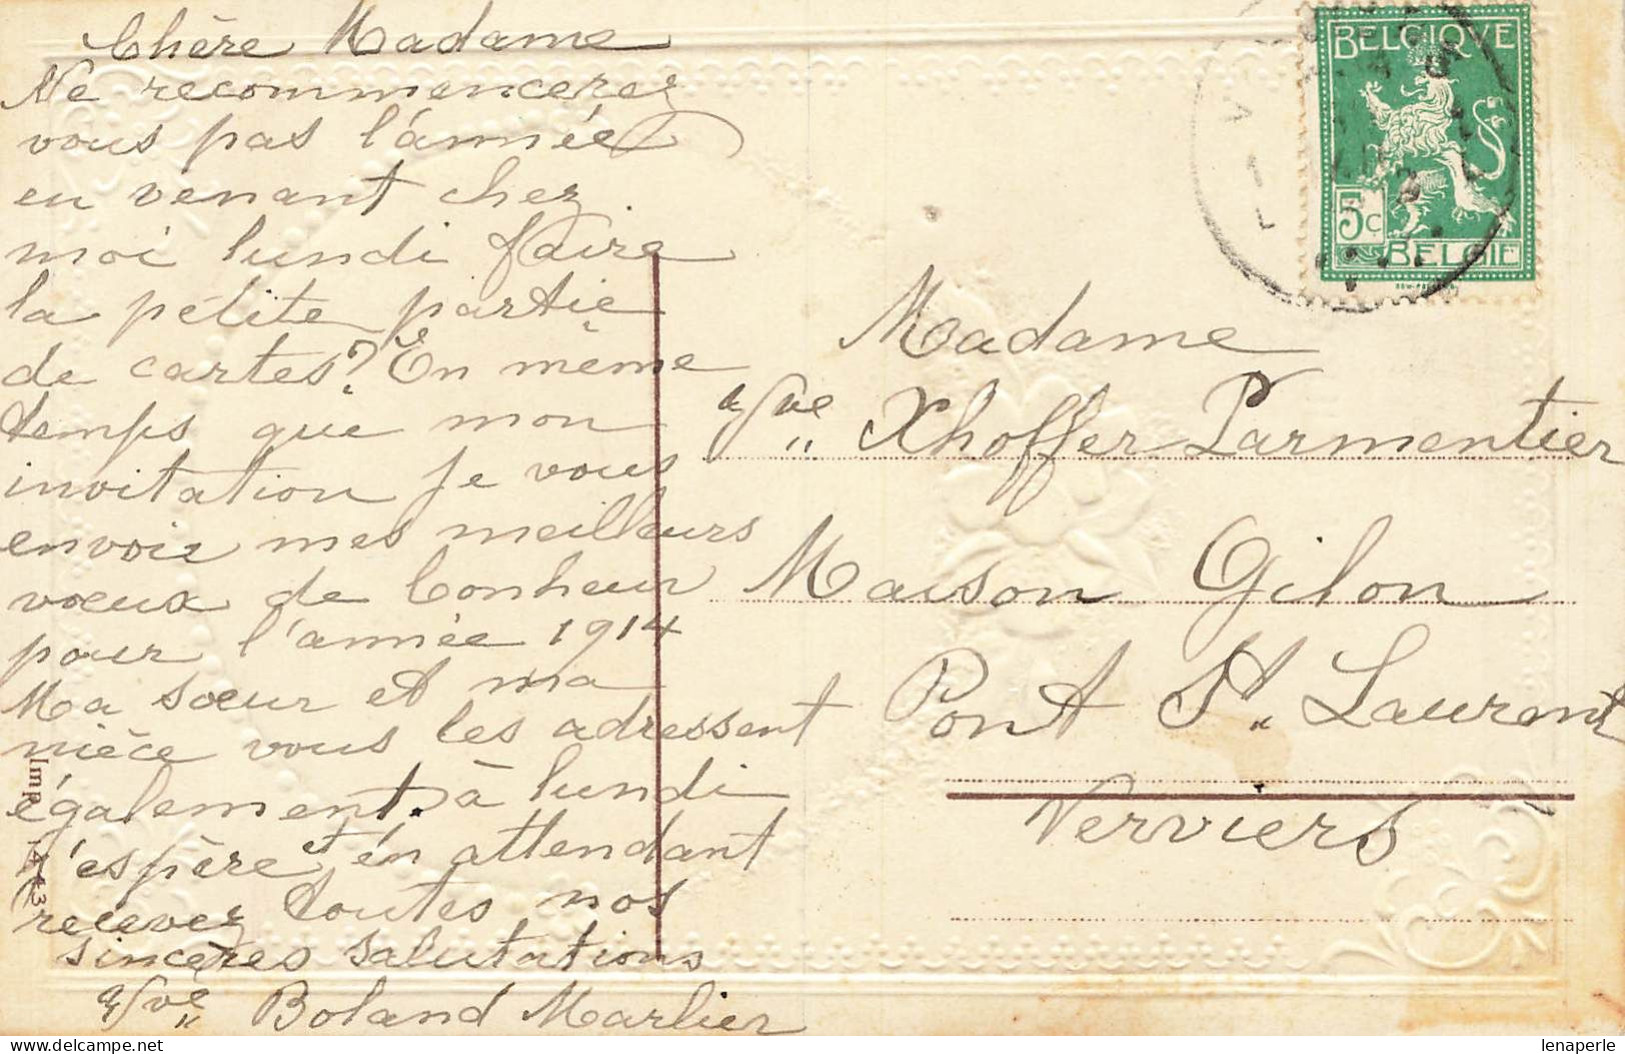 Chère Madame
Ne recommencerez
vous pas l'année
en venant chez
moi lundi faire
la petite partie
de cartes? En même
temps que mon
invitation je vous
envoie mes meilleurs
voeux de bonheur
pour l'année 1914
Ma soeur et ma
nièce vous les adressent
également. à lundi
j'espère et en attendant
recevez toutes nos
sincères salutations
Vve Boland Marlier
Imp. 14143
BELGIQUE
5c
BELGIË
Madame
Vve Xhoffer Parmentier
Maison Gilon
Pont St. Laurent
Verviers
delcampe.net
lenaperle